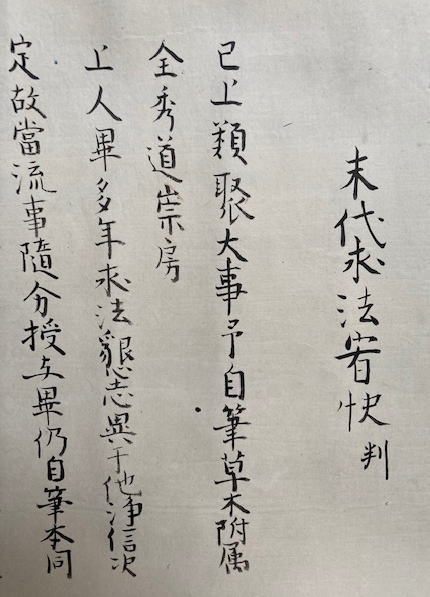 末代求法宥快判
已上類聚大事予自筆草木附属
全秀道崇房
上人畢多年求法懇志異于他浄信次
定故當流事隨分授与畢仍自筆本同